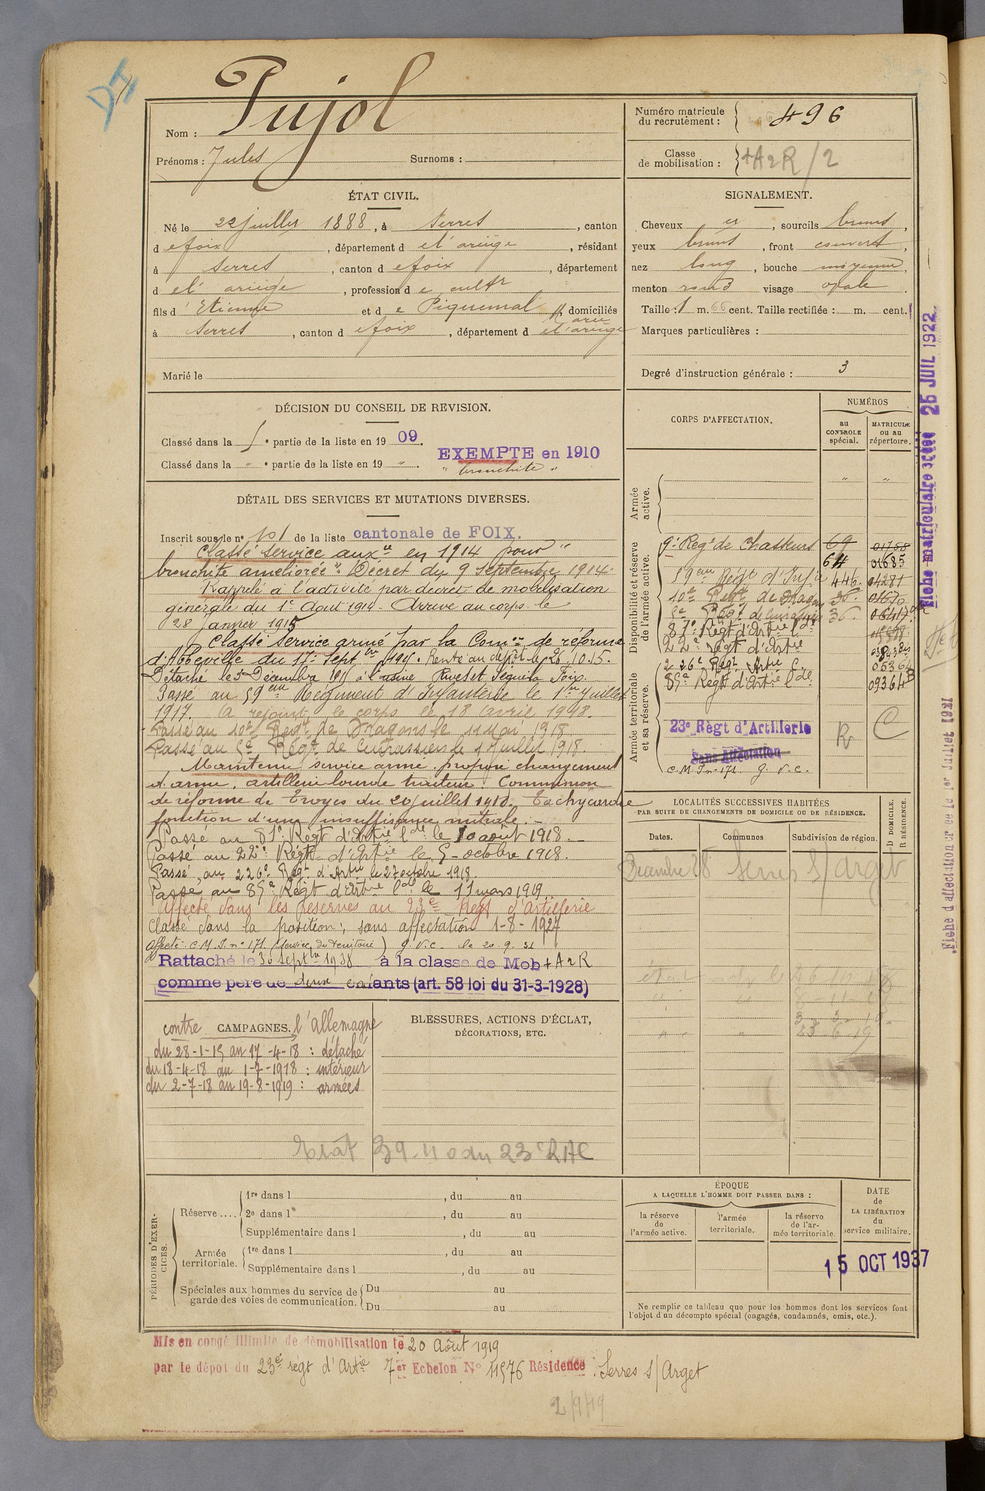 Pujol
Nom :
Numéro matricule du recrutement : 496
Prénoms : Jules Surnoms :
Classe de mobilisation : +A2R/2
ÉTAT CIVIL.
Né le 22 juillet 1888, à Serres, canton
d e foix, département d e l'ariège, résidant
à Serres, canton d e foix, département
d e l'ariège, profession d e cultr
fils d' Etienne et d e Piquemal domiciliés
à Serres, canton d e foix, département d e l'ariège
Marié le
SIGNALEMENT.
Cheveux , sourcils bruns,
yeux bruns, front couvert,
nez long, bouche moyenne,
menton rond visage ovale
Taille : 1 m. 66 cent. Taille rectifiée : m. cent.
Marques particulières :
Degré d'instruction générale : 3
DÉCISION DU CONSEIL DE REVISION.
Classé dans la e partie de la liste en 19 09.
EXEMPTÉ en 1910
Classé dans la " e partie de la liste en 19 "
" bronchite "
DÉTAIL DES SERVICES ET MUTATIONS DIVERSES.
Inscrit sous le n° 101 de la liste cantonale de FOIX.
Classé service auxre en 1914 pour "
bronchite améliorée". Décret du 9 Septembre 1914.
Rappelé à l'activité par décret de mobilisation
générale du 1er Août 1914. Arrivé au corps le
28 janvier 1915
Classé service armé par la Comon de réforme
d'Abbeville du 17 Septbre 1915. Rentré au dépôt le 26.10.15.
Détaché le 5 Décembre 1915 à l'usine Rives et Séguéla Foix.
Passé au 59eme Régiment d'Infanterie le 1er Juillet
1917. A rejoint le corps le 18 Avril 1918.
Passé au 10e Régt de Dragons le 11 Mai 1918
Passé au 5e Régt de Cuirassiers le 1 Juillet 1918.
Maintenu service armé, proposé changement
d'arme, artillerie lourde tracteur. Commission
de réforme de Troyes du 20 juillet 1918. Tachycardie
fonction d'une insuffisance mitrale.
Passé au 81e Régt d'Artie lde le 10 août 1918.
Passé au 22e Régt d'Artie le 5 octobre 1918.
Passé au 226e Régt d'Artie le 27 octobre 1918.
Passé au 85e Régt d'Artie lde le 11 mars 1919.
Affecté dans les réserves au 23e Régt d'artillerie
Classé dans la position, sans affectation 1-8-1927
affecté C.M.I. n° 171 (service du territoire) G.V.C. le 20.9.31
Rattaché le 30 septbre 1938 à la classe de Mob +A2R
comme père de deux enfants (art. 58 loi du 31-3-1928)
CORPS D'AFFECTATION.
NUMÉROS
au CONTROLE spécial.
MATRICULE ou au répertoire.
Armée active.
" "
Disponibilité et réserve de l'armée active.
9e Régt de Chasseurs 69 01758
64 01685
59eme Régt d'Infie 446 04281
10e Régt de Dragons 01670
5e Régt de Cuirassiers 36
81e Régt d'Artie lde
22e Régt d'Artie
226e Régt Artie C.
85e Régt d'Artie lde 09364
Armée territoriale et sa réserve.
23e Régt d'Artillerie R C
Sans Affectation
C.M.I. n° 171. G.V.C.
LOCALITÉS SUCCESSIVES HABITÉES
PAR SUITE DE CHANGEMENTS DE DOMICILE OU DE RÉSIDENCE.
Dates. Communes Subdivision de région. D DOMICILE. R RÉSIDENCE.
Décembre 28 Serres s/ arget
contre CAMPAGNES. l'Allemagne
du 28-1-15 au 17-4-18 : détaché
du 18-4-18 au 1-7-1918 : intérieur
du 2-7-18 au 19-8-1919 : armées
BLESSURES, ACTIONS D'ÉCLAT,
DÉCORATIONS, ETC.
Etat 39.110 du 23e RAC
PÉRIODES D'EXERCICES.
Réserve....
1re dans l , du au
2e dans l , du au
Supplémentaire dans l , du au
Armée territoriale.
1re dans l , du au
Supplémentaire dans l , du au
Spéciales aux hommes du service de garde des voies de communication.
Du au
Du au
ÉPOQUE
A LAQUELLE L'HOMME DOIT PASSER DANS :
la réserve de l'armée active.
l'armée territoriale.
la réserve de l'armée territoriale.
DATE DE LA LIBÉRATION du service militaire.
15 OCT 1937
Ne remplir ce tableau que pour les hommes dont les services font
l'objet d'un décompte spécial (engagés, condamnés, omis, etc.).
Mis en congé illimité de démobilisation le 20 Août 1919
par le dépôt du 23e regt d'Artie 7er Echelon N° 11576 Résidence : Serres s/ Arget
2/9/19
Fiche matriculaire créée 25 JUIL 1922.
Fiche d'affectation créée le 1er Juillet 1921